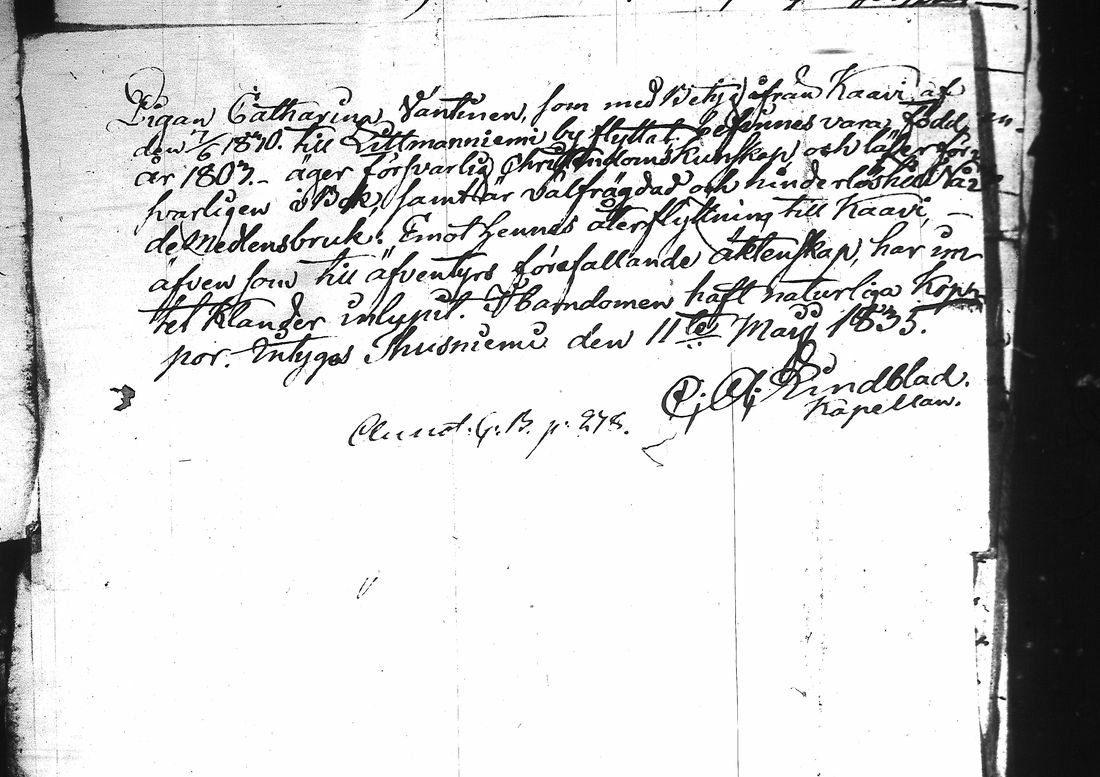 Pigan Catharina Väntinen, som med Betyg ifrån Kaavi af
den 7/6 1830. till Littmanniemi by flyttat. befinnes vara född
år 1803. – äger försvarlig Christendoms kunskap, och läser för-
svarligen i Bok, samt är välfrägdad och hinderlös till Når-
de Medlens bruk. Emot hennes återflyttning till Kaavi, –
äfven som till äfventyrs förefallande äktenskap, har in-
tet klander inlupit. I barndomen haft naturliga Kopp-
por. Intygas Thusniemi den 11te Maij 1835.
Lindblad.
Kapellan.
Annot. C. B. p. 278.